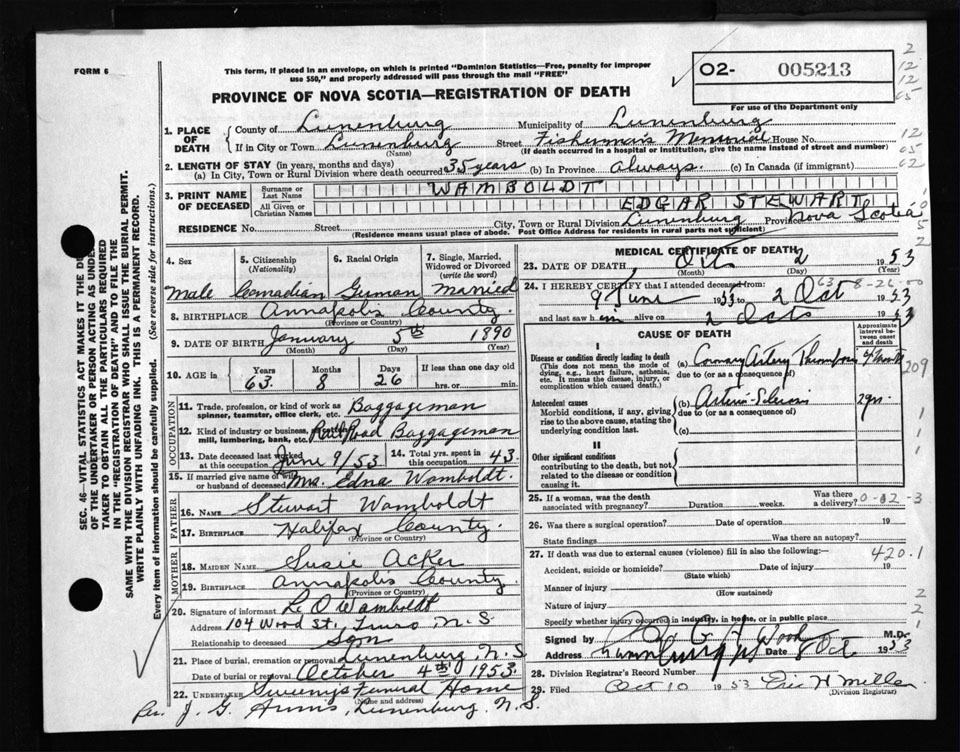 FORM 6
This form, if placed in an envelope, on which is printed "Dominion Statistics—Free, penalty for improper
use $50," and properly addressed will pass through the mail "FREE"
02- 005213
For use of the Department only
PROVINCE OF NOVA SCOTIA—REGISTRATION OF DEATH
2
12
12
65
12
05
02
1. PLACE OF DEATH
County of Lunenburg Municipality of Lunenburg
If in City or Town Lunenburg Street Fishermen's Memorial House No.
(Name) (If death occurred in a hospital or institution, give the name instead of street and number)
2. LENGTH OF STAY (in years, months and days)
(a) In City, Town or Rural Division where death occurred 35 years (b) In Province Always. (c) In Canada (if immigrant)
3. PRINT NAME OF DECEASED
Surname or Last Name WAMBOLDT
All Given or Christian Names EDGAR STEWART
RESIDENCE No. Street City, Town or Rural Division Lunenburg Province Nova Scotia
(Residence means usual place of abode. Post Office Address for residents in rural parts not sufficient)
SEC. 46—VITAL STATISTICS ACT MAKES IT THE
OF THE UNDERTAKER OR PERSON ACTING AS UNDER
TAKER TO OBTAIN ALL THE PARTICULARS REQUIRED
IN THE "REGISTRATION OF DEATH" AND TO FILE THE
SAME WITH THE DIVISION REGISTRAR WHO SHALL ISSUE THE BURIAL PERMIT.
WRITE PLAINLY WITH UNFADING INK. THIS IS A PERMANENT RECORD.
Every item of information should be carefully supplied. (See reverse side for instructions.)
4. Sex
5. Citizenship (Nationality)
6. Racial Origin
7. Single, Married, Widowed or Divorced (write the word)
Male Canadian German Married
8. BIRTHPLACE Annapolis County.
(Province or Country)
9. DATE OF BIRTH January 5th 1890
(Month) (Day) (Year)
10. AGE Years 63 Months 8 Days 26 If less than one day
hrs. or min.
OCCUPATION
11. Trade, profession, or kind of work as
spinner, teamster, office clerk, etc. Baggageman
12. Kind of industry or business,
mill, lumbering, bank, etc. Rail Road Baggageman
13. Date deceased last worked
at this occupation June 9/53
14. Total yrs. spent in
this occupation 43.
15. If married give name of wife
or husband of deceased Mrs. Edna Wamboldt.
FATHER
16. NAME Stewart Wamboldt
17. BIRTHPLACE Halifax County.
(Province or Country)
MOTHER
18. MAIDEN NAME Susie Acker
19. BIRTHPLACE Annapolis County.
(Province or Country)
20. Signature of informant L. O Wamboldt
Address 104 Wood St., Truro N.S
Relationship to deceased Son
21. Place of burial, cremation or removal Lunenburg, N.S
Date of burial or removal October 4th 1953.
22. UNDERTAKER Sweeny's Funeral Home
Per. J. G. Lunenburg, N.S.
MEDICAL CERTIFICATE OF DEATH
23. DATE OF DEATH Oct 2 1953
(Month) (Day) (Year)
24. I HEREBY CERTIFY that I attended deceased from: 63-8-26-00
9 June 1953 to 2 Oct 1953
and last saw him alive on 2 Oct 1953
CAUSE OF DEATH
Approximate interval between onset and death
I
Disease or condition directly leading to death
(This does not mean the mode of
dying, e.g., heart failure, asthenia,
etc. It means the disease, injury, or
complication which caused death.)
(a) Coronary Artery Thrombosis 4 Months
due to (or as a consequence of)
209
Antecedent causes
Morbid conditions, if any, giving
rise to the above cause, stating the
underlying condition last.
(b) Arterio-Sclerosis 2 yrs.
due to (or as a consequence of)
(c)
1
1
1
II
Other significant conditions
contributing to the death, but not
related to the disease or condition
causing it.
25. If a woman, was the death
associated with pregnancy? Duration weeks. Was there
a delivery?
0-02-3
26. Was there a surgical operation? Date of operation 19
State findings Was there an autopsy?
27. If death was due to external causes (violence) fill in also the following:—
420.1
Accident, suicide or homicide? Date of injury 19
(State which)
Manner of injury
(How sustained)
Nature of injury
2
2
1
Specify whether injury occurred in industry, in home, or in public place
Signed by Wood M.D.
Address Lunenburg NS Date 8 Oct 1953
28. Division Registrar's Record Number
29. Filed Oct 10 1953 Eric H Miller
(Division Registrar)